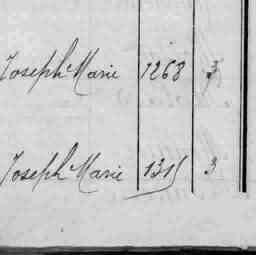 Joseph Marie 1268 3
Joseph Marie 1315 3